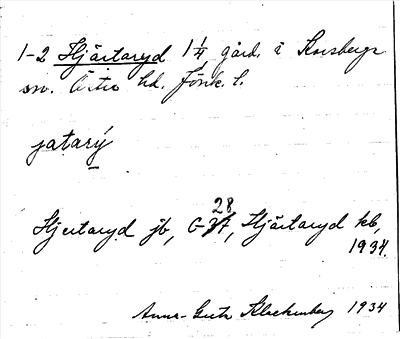 1-2 Hjärtaryd 1 1/4 gård. i Korsberga
sn. Östra hd. Jönk. l.
jatarȳ
Hjertaryd jb, G 28, Hjärtaryd kb,
1934.
Anna-Greta Klackenberg 1934